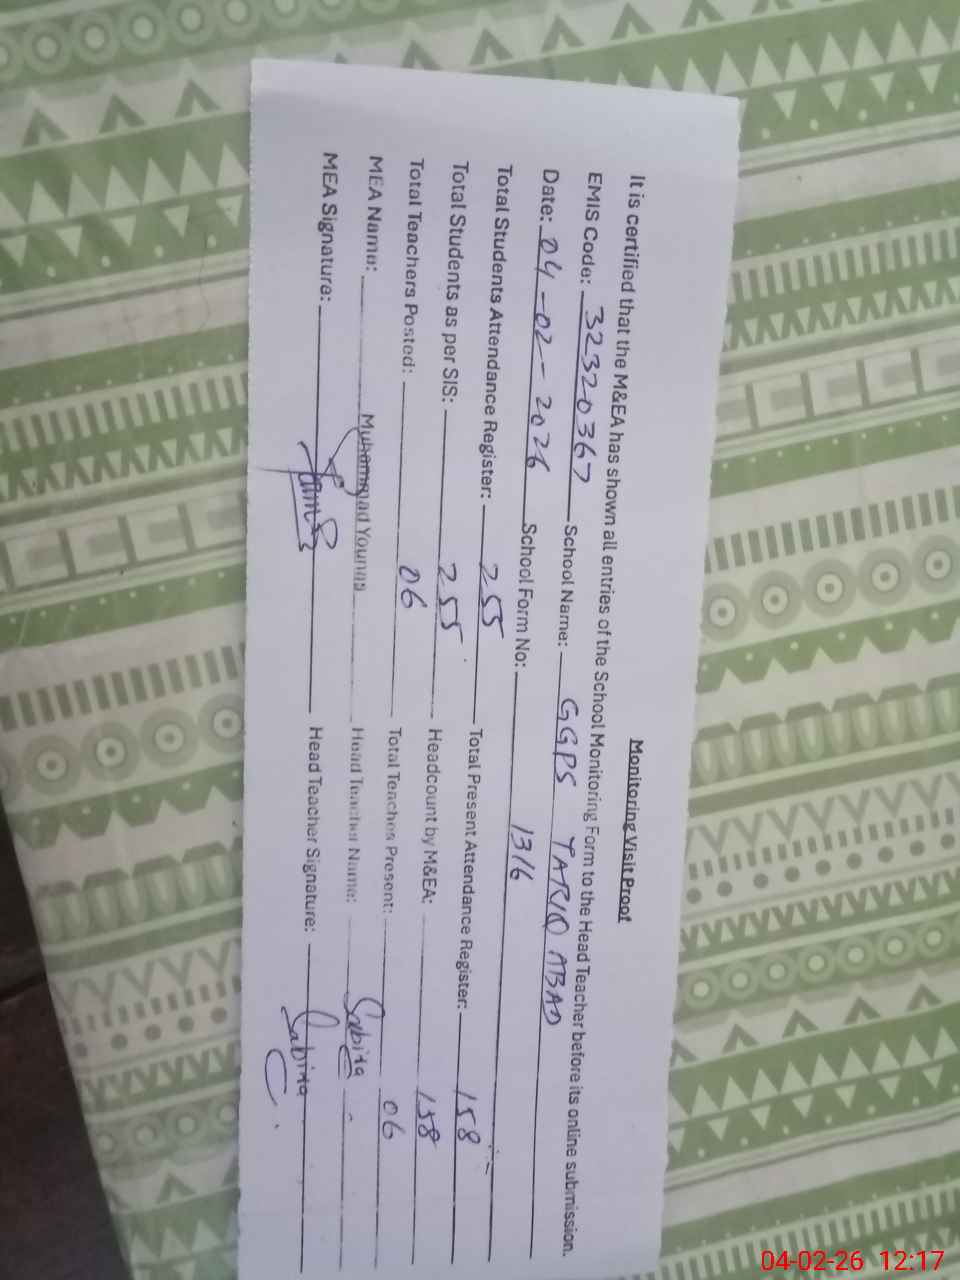 Monitoring Visit Proof
It is certified that the M&EA has shown all entries of the School Monitoring Form to the Head Teacher before its online submission.
EMIS Code: 32320367 School Name: GGPS TARIQ ABAD
Date: 04-02-2026 School Form No: 1316
Total Students Attendance Register: 255 Total Present Attendance Register: 158
Total Students as per SIS: 255 Headcount by M&EA: 158
Total Teachers Posted: 06 Total Teaches Present: 06
MEA Name: Muhammad Younas Head Teacher Name: Sabina
MEA Signature: Head Teacher Signature: Sabina
04-02-26 12:17